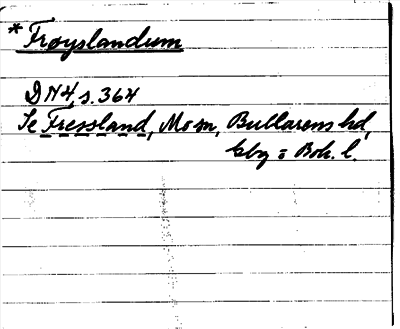 * Frøyslandum
DN 4 s. 364
Se Fressland, Mo sn, Bullarens hd,
Gbg o Boh. l.